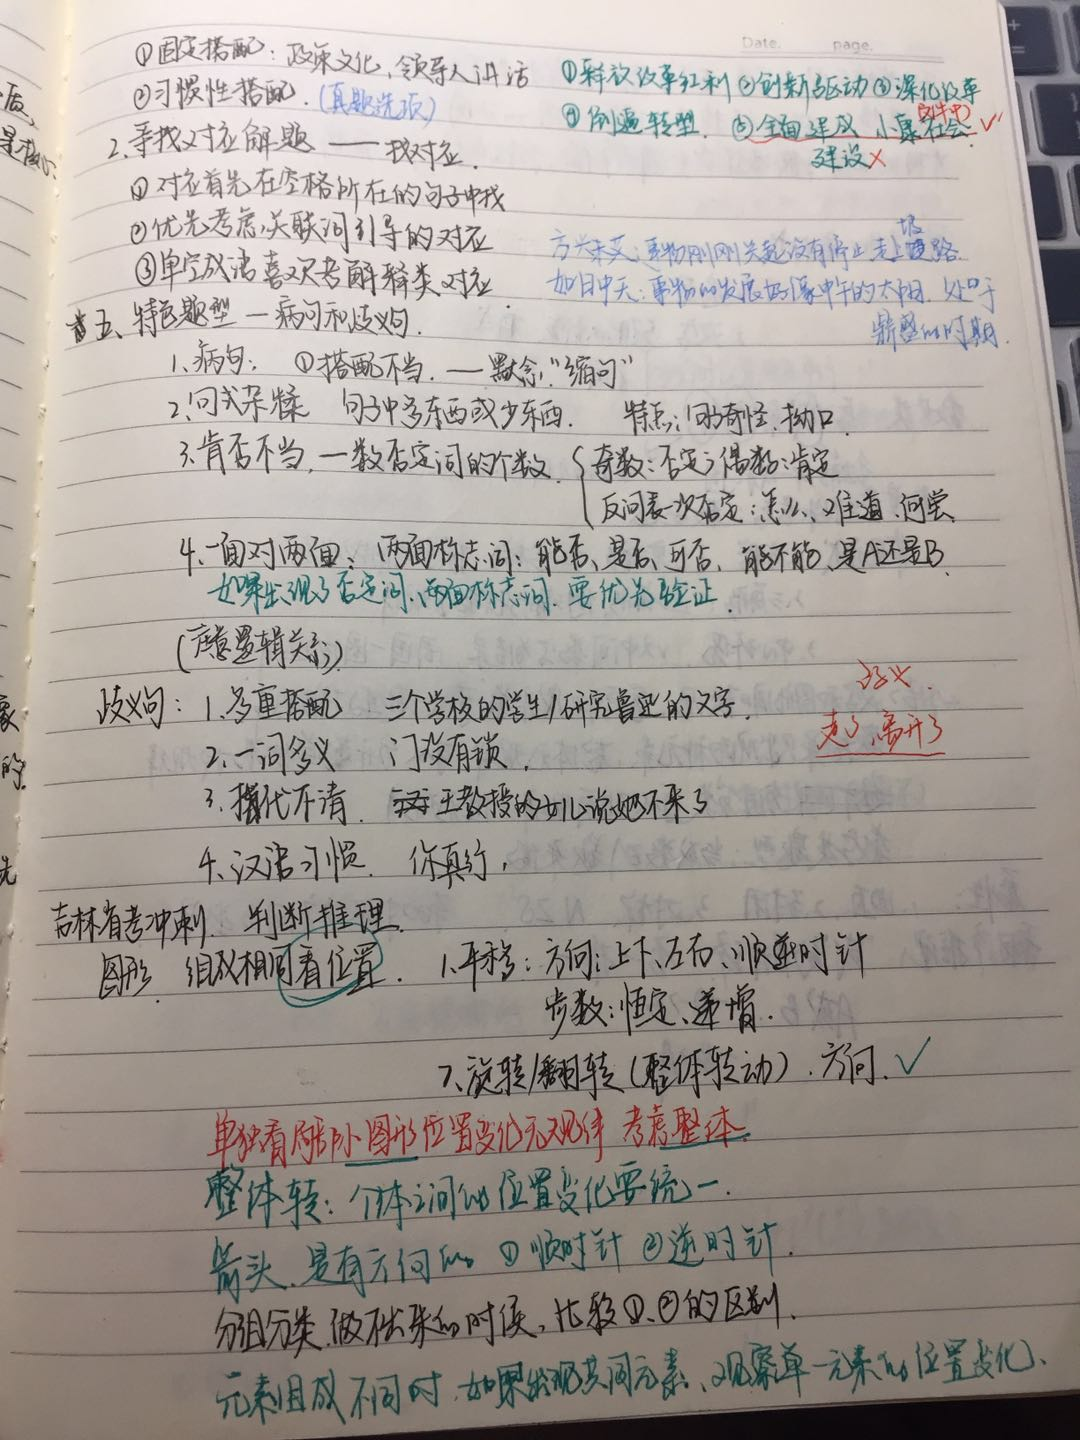 Date. page.
①固定搭配：政策文化、领导人讲话
①释放改革红利②创新驱动③深化改革
②习惯性搭配.（真题选项）
④倒逼转型. ⑤全面建成 小康社会 ✓
建设×
2、寻找对应解题 —— 找对应.
① 对应首先在空格所在的句子中找
②优先考虑关联词引导的对应
③单空成语喜欢考解释类对应
方兴未艾：事物刚刚兴起没有停止走上坡路.
如日中天：事物的发展好像中午的太阳. 处于
鼎盛的时期.
五、特色题型 — 病句和歧义句.
1、病句： ①搭配不当. — 默念“缩句”
2、句式杂糅 句子中多东西或少东西. 特点：句子奇怪、拗口.
3、肯否不当. — 数否定词的个数. 奇数：否定；偶数：肯定
反问表一次否定：怎么、难道、何尝.
4、一面对两面： 两面标志词：能否、是否、可否、能不能、是A还是B.
如果出现了否定词、两面标志词. 要优先验证.
（注意逻辑关系）
歧义句： 1、多重搭配 三个学校的学生/研究鲁迅的文字.
歧义.
2、一词多义 门没有锁.
走了、离开了
3、指代不清. 王教授的女儿说她不来了
4、汉语习惯. 你真行.
吉林省考冲刺. 判断推理.
图形. 组成相同看位置. 1、平移：方向：上下、左右、顺逆时针
步数：恒定、递增.
2、旋转/翻转（整体转动）. 方向. ✓
单独看局部小图形位置变化无规律 考虑整体.
整体转：个体之间的位置变化要统一.
箭头、是有方向的 ①顺时针 ②逆时针.
分组分类. 做不出来的时候，比较①、②的区别.
元素组成不同时. 如果出现共同元素、观察单一元素的位置变化、